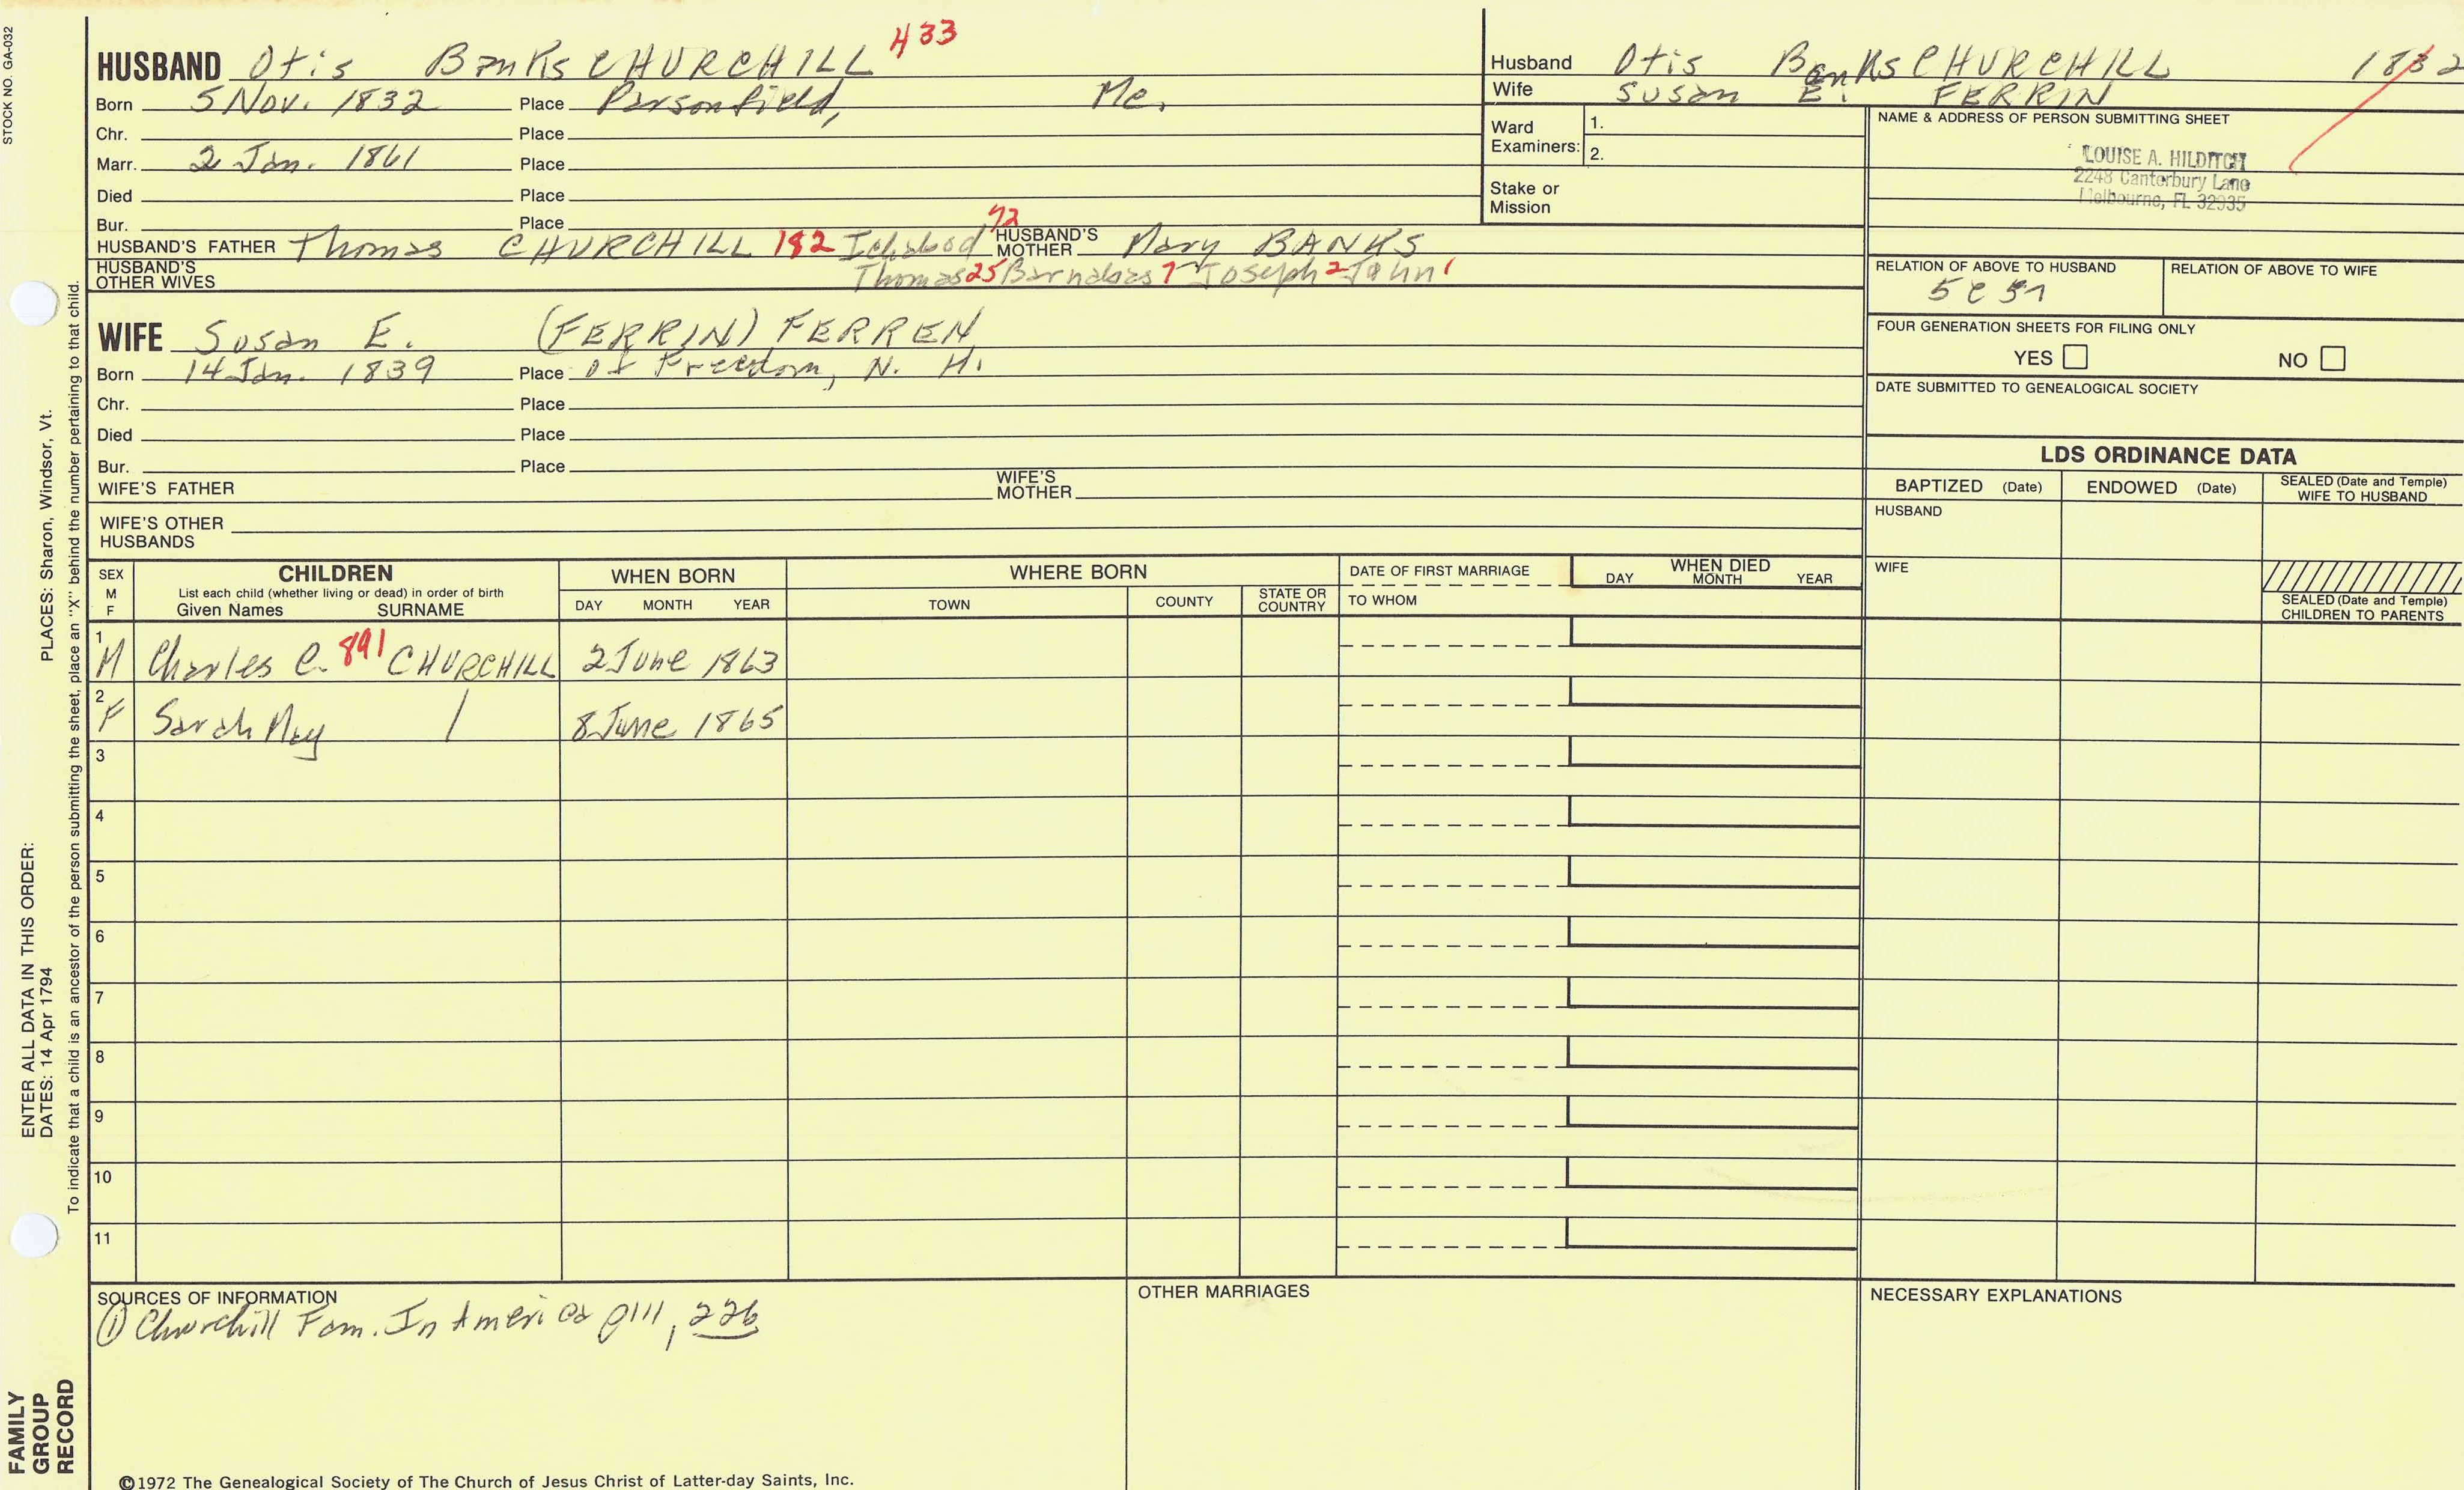 STOCK NO. GA-032
HUSBAND Otis Banks CHURCHILL 433
Born 5 Nov. 1832 Place Parsonfield, Me.
Chr. Place
Marr. 2 Jan. 1861 Place
Died Place
Bur. Place
HUSBAND'S FATHER Thomas CHURCHILL 182 Ichabod 72 HUSBAND'S MOTHER Mary BANKS
HUSBAND'S OTHER WIVES Thomas 25 Barnabas 7 Joseph 2 John 1
WIFE Susan E. (FERRIN) FERREN
Born 14 Jan. 1839 Place of Freedom, N. H.
Chr. Place
Died Place
Bur. Place
WIFE'S FATHER WIFE'S MOTHER
WIFE'S OTHER HUSBANDS
Husband Otis Banks CHURCHILL 1832
Wife Susan E. FERRIN
Ward Examiners: 1.
2.
Stake or Mission
NAME & ADDRESS OF PERSON SUBMITTING SHEET
LOUISE A. HILDITCH
2248 Canterbury Lane
Melbourne, FL 32935
RELATION OF ABOVE TO HUSBAND RELATION OF ABOVE TO WIFE
5C
FOUR GENERATION SHEETS FOR FILING ONLY
YES NO
DATE SUBMITTED TO GENEALOGICAL SOCIETY
LDS ORDINANCE DATA
BAPTIZED (Date) ENDOWED (Date) SEALED (Date and Temple) WIFE TO HUSBAND
HUSBAND
WIFE
SEALED (Date and Temple) CHILDREN TO PARENTS
SEX M F
CHILDREN
List each child (whether living or dead) in order of birth
Given Names SURNAME
WHEN BORN
DAY MONTH YEAR
WHERE BORN
TOWN COUNTY STATE OR COUNTRY
DATE OF FIRST MARRIAGE
TO WHOM
WHEN DIED
DAY MONTH YEAR
1 M Charles C. 891 CHURCHILL 2 June 1863
2 F Sarah May / 8 June 1865
3
4
5
6
7
8
9
10
11
SOURCES OF INFORMATION
① Churchill Fam. In America p111, 226
OTHER MARRIAGES
NECESSARY EXPLANATIONS
©1972 The Genealogical Society of The Church of Jesus Christ of Latter-day Saints, Inc.
ENTER ALL DATA IN THIS ORDER:
DATES: 14 Apr 1794 PLACES: Sharon, Windsor, Vt.
To indicate that a child is an ancestor of the person submitting the sheet, place an "X" behind the number pertaining to that child.
FAMILY
GROUP
RECORD